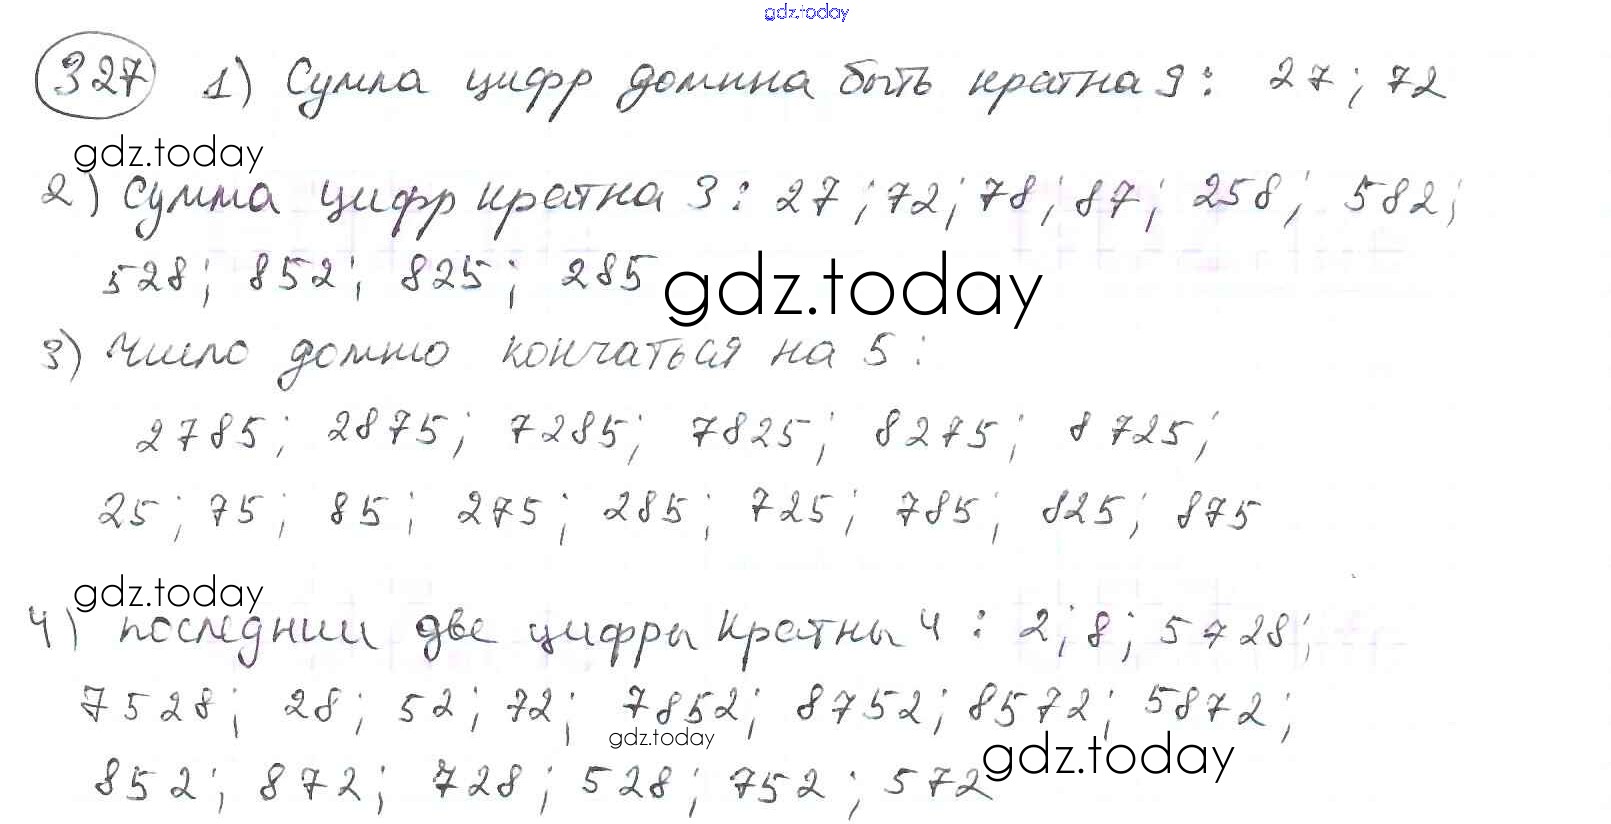 gdz.today
327 1) Сумма цифр должна быть кратна 9: 27; 72
gdz.today
2) Сумма цифр кратна 3: 27; 72; 78; 87; 258; 582;
528; 852; 825; 285 gdz.today
3) Число должно кончаться на 5:
2785; 2875; 7285; 7825; 8275; 8725;
25; 75; 85; 275; 285; 725; 785; 825; 875
gdz.today
4) последнии две цифры кратны 4: 2; 8; 5728;
7528; 28; 52; 72; 7852; 8752; 8572; 5872;
gdz.today
852; 872; 728; 528; 752; 572 gdz.today